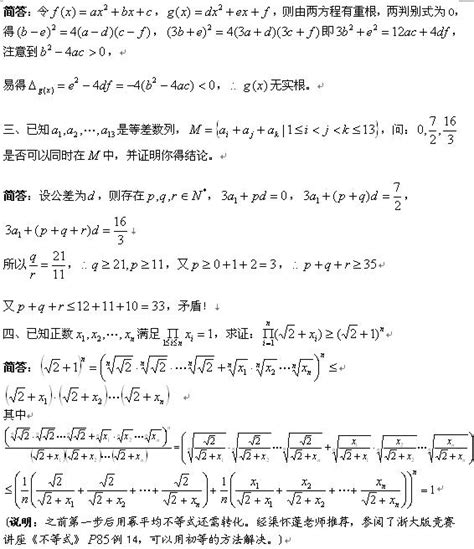 简答:令 f(x)=ax²+bx+c,g(x)=dx²+ex+f,则由两方程有重根,两判别式为 0,
得 (b−e)²=4(a−d)(c−f),(3b+e)²=4(3a+d)(3c+f) 即 3b²+e²=12ac+4df,
注意到 b²−4ac>0,
易得 Δ_{g(x)}=e²−4df=−4(b²−4ac)<0,∴ g(x) 无实根。
三、已知 a₁,a₂,⋯,a₁₃ 是等差数列,M={aᵢ+aⱼ+aₖ|1≤i<j<k≤13},问:0,7/2,16/3
是否可以同时在 M 中,并证明你得结论。
简答:设公差为 d,则存在 p,q,r∈N*,3a₁+pd=0,3a₁+(p+q)d=7/2,
3a₁+(p+q+r)d=16/3
所以 q/r=21/11,∴q≥21,p≥11,又 p≥0+1+2=3,∴p+q+r≥35
又 p+q+r≤12+11+10=33,矛盾!
四、已知正数 x₁,x₂,⋯,xₙ 满足 ∏_{1≤i≤n} xᵢ=1,求证:∏_{i=1}^{n}(√2+xᵢ)≥(√2+1)ⁿ
简答:(√2+1)ⁿ=(ⁿ√√2·ⁿ√√2⋯ⁿ√√2+ⁿ√x₁·ⁿ√x₂⋯ⁿ√xₙ)ⁿ≤
(√2+x₁)·(√2+x₂)⋯(√2+xₙ)
其中
(ⁿ√√2·ⁿ√√2⋯ⁿ√√2+ⁿ√x₁·ⁿ√x₂⋯ⁿ√xₙ)ⁿ/((√2+x₁)(√2+x₂)⋯(√2+xₙ))=(ⁿ√(√2/(√2+x₁))·ⁿ√(√2/(√2+x₂))⋯ⁿ√(√2/(√2+xₙ))+ⁿ√(x₁/(√2+x₁))·ⁿ√(x₂/(√2+x₂))⋯ⁿ√(xₙ/(√2+xₙ)))ⁿ
≤(1/n(√2/(√2+x₁)+√2/(√2+x₂)+⋯+√2/(√2+xₙ))+1/n(x₁/(√2+x₁)+x₂/(√2+x₂)+⋯+xₙ/(√2+xₙ)))ⁿ=1
(说明:之前第一步后用幂平均不等式还需转化。经渠怀莲老师推荐,参阅了浙大版竞赛
讲座《不等式》P85例 14,可以用初等的方法解决。)